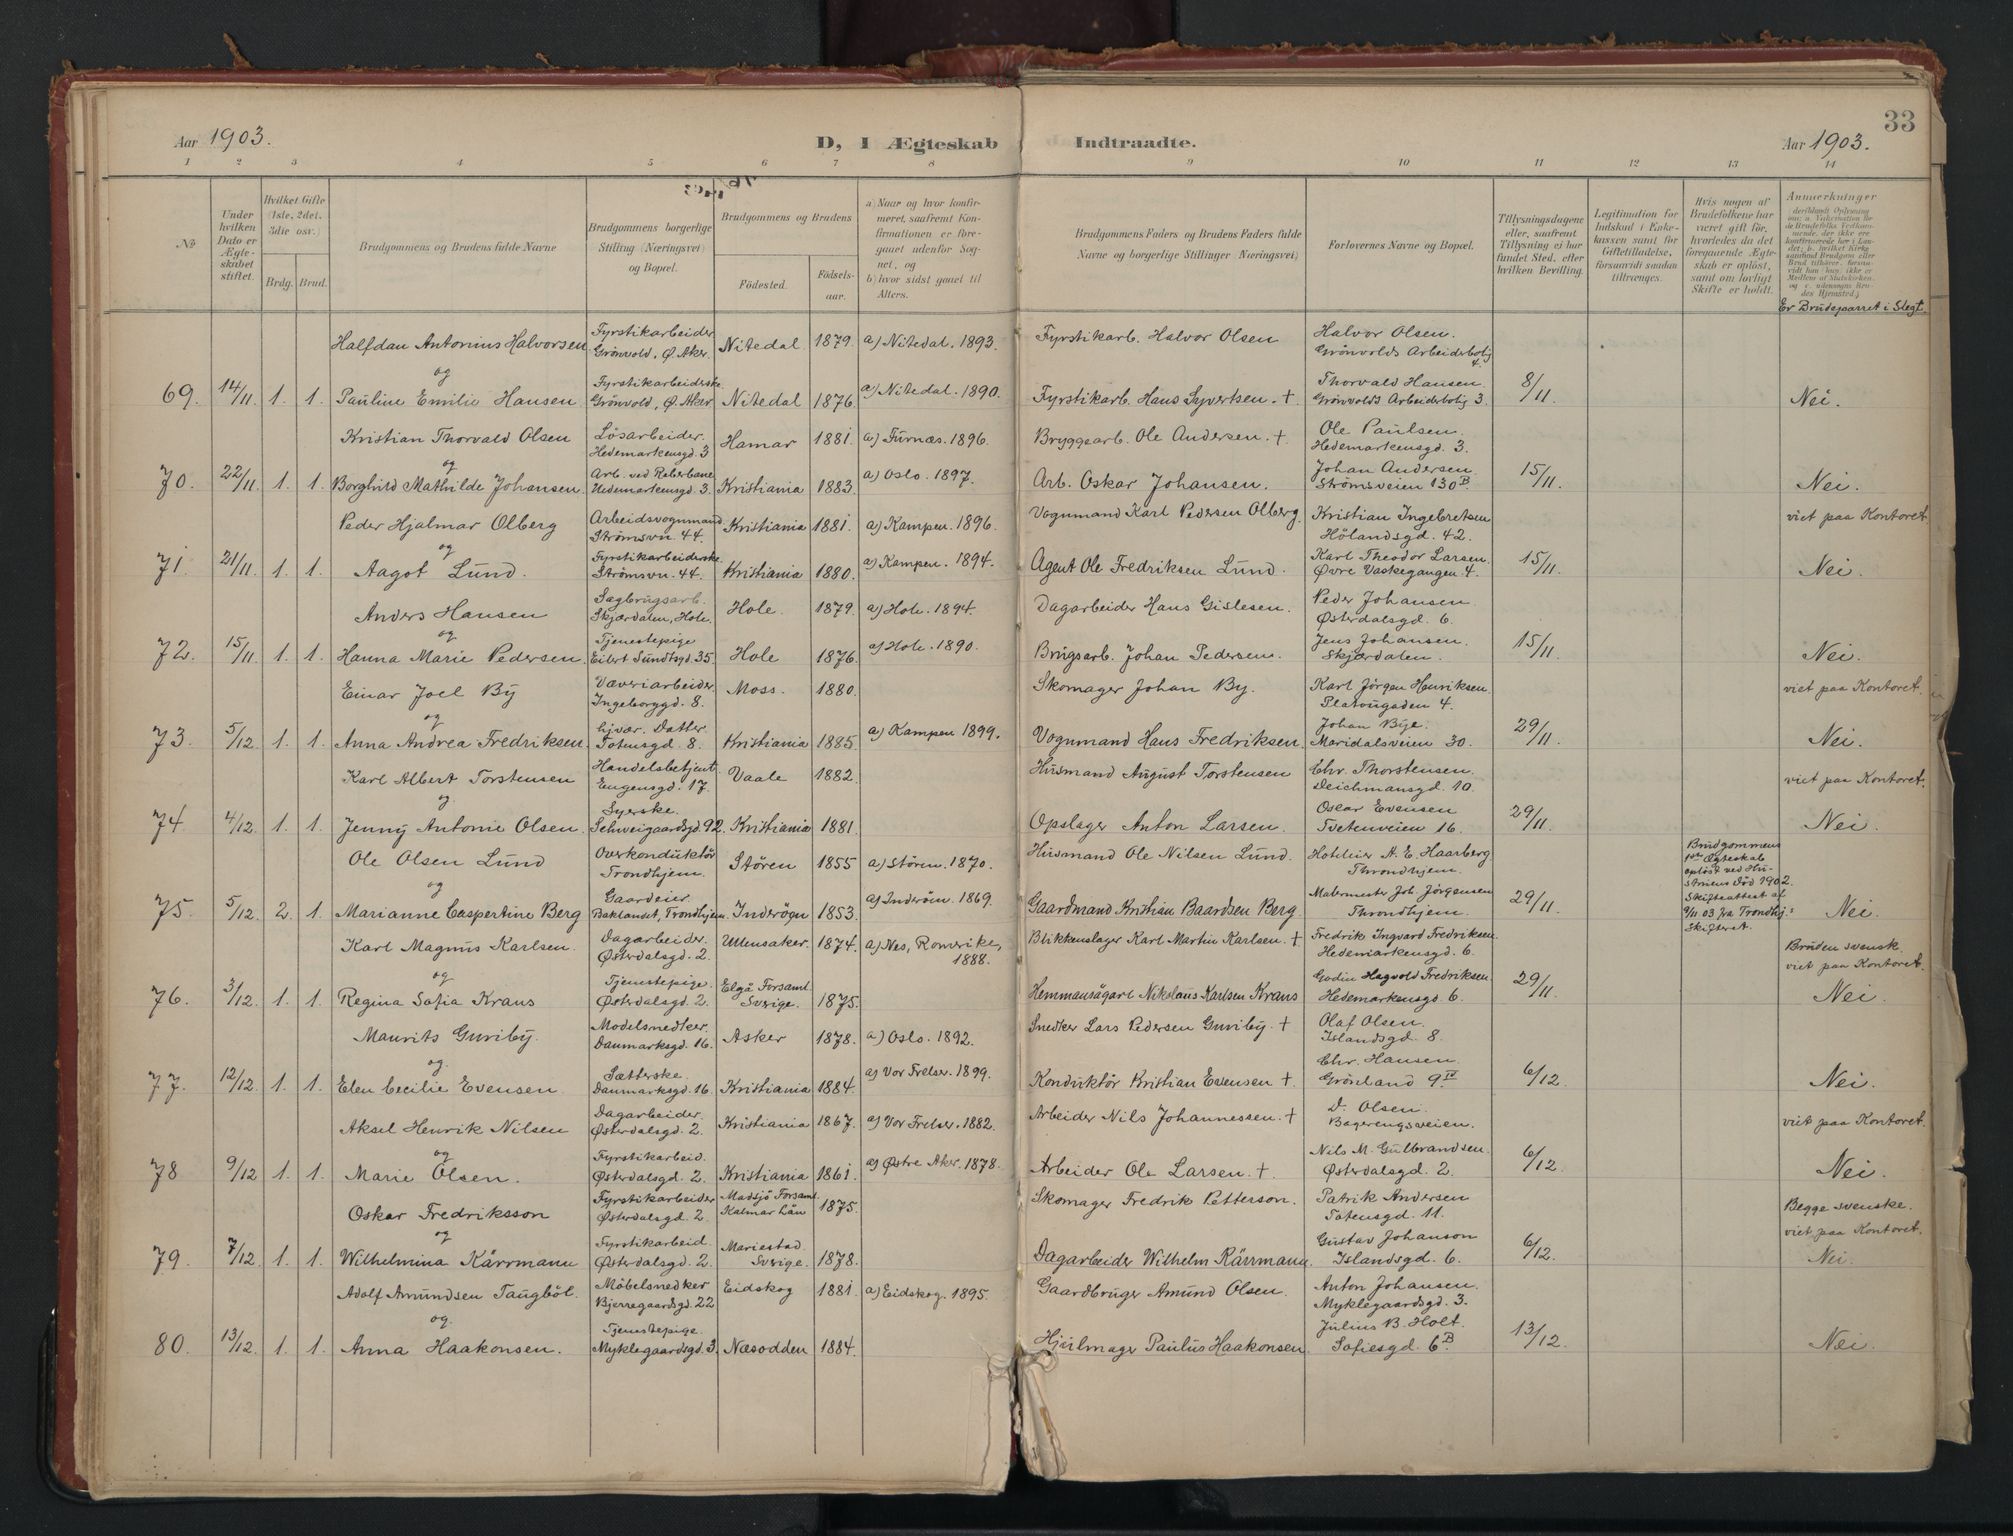 Aar 1903.
D, I Ægteskab Indtraadte.
33
Aar 1903.
1 2 3 4 5 6 7 8 9 10 11 12 13 14
No
Under hvilken Dato er Ægteskabet stiftet.
Hvilket Gifte (1ste, 2det, 3die osv.)
Brdg. Brud.
Brudgommens og Brudens fulde Navne
Brudgommens borgerlige Stilling (Næringsvei) og Bopæl.
Brudgommens og Brudens
Födested.
Födselsaar.
a) Naar og hvor konfirmeret, saafremt Konfirmationen er foregaaet udenfor Sognet, og
b) hvor sidst gaaet til Alters.
Brudgommens Faders og Brudens Faders fulde Navne og borgerlige Stillinger (Næringsvei)
Forlovernes Navne og Bopæl.
Tillysningsdagene eller, saafremt Tillysning ei har fundet Sted, efter hvilken Bevilling.
Legitimation for Indskud i Enkekassen samt for Giftetilladelse, forsaavidt saadan tiltrænges.
Hvis nogen af Brudefolkene har været gift før, hvorledes da det foregaaende Ægteskab er opløst, samt om lovligt Skifte er holdt.
Anmerkninger
Er Brudeparret i Slegt.
Halfdan Antonius Halvorsen Fyrstikarbeider Grönvold, Ø. Aker. Nitedal 1879. a) Nitedal. 1893. Fyrstikarb. Halvor Olsen Halvor Olsen. Grönvolds Arbeiderbolig 4.
og
69. 14/11. 1. 1. Pauline Emilie Hansen Fyrstikarbeiderske Grönvold, Ø. Aker Nitedal 1876. a) Nitedal. 1890. Fyrstikarb. Hans Syvertsen. + Thorvald Hansen. Grönvolds Arbeiderbolig 3. 8/11. Nei.
Kristian Thorvald Olsen Lösarbeider. Hedemarkensgd. 3 Hamar 1881. a) Furnæs. 1896. Bryggearb. Ole Andersen. + Ole Paulsen. Hedemarkensgd. 3.
og
70. 22/11. 1. 1. Borghild Mathilde Johansen. Arb. ved Reberbane Hedemarkensgd. 3. Kristiania 1883. a) Oslo. 1897. Arb. Oskar Johansen. Johan Andersen. Strömsveien 130B. 15/11. Nei.
Peder Hjalmar Olberg Arbeidsvognmand. Strömsvn. 44. Kristiania 1881. a) Kampen. 1896. Vognmand Karl Pedersen Olberg. Kristian Ingebretsen Hölandsgd. 42. viet paa Kontoret.
og
71. 21/11. 1. 1. Aagot Lund. Fyrstikarbeiderske. Strömsvn. 44. Kristiania 1880. a) Kampen. 1894. Agent Ole Fredriksen Lund. Karl Theodor Larsen. Øvre Vaskegangen 4. 15/11. Nei.
Anders Hansen Sagbrugsarb. Skjærdalen, Hole. Hole. 1879. a) Hole. 1894. Dagarbeider Hans Gislesen. Peder Johansen. Østerdalsgd. 6.
og
72. 15/11. 1. 1. Hanna Marie Pedersen. Tjenestepige Eilert Sundtsgd. 35. Hole 1876. a) Hole. 1890. Brugsarb. Johan Pedersen. Jens Johansen. Skjærdalen. 15/11. Nei.
Einar Joel By Væveriarbeider. Ingeborggd. 8. Moss. 1880. Skomager Johan By. Karl Jörgen Henriksen. Platougaden 4. viet paa Kontoret.
og
73. 5/12. 1. 1. Anna Andrea Fredriksen hjvær. Datter. Totensgd. 8. Kristiania 1885. a) Kampen 1899. Vognmand Hans Fredriksen. Johan Bye. Maridalsveien 30. 29/11. Nei.
Karl Albert Torstensen Handelsbetjent. Eugensgd. 17. Vaale 1882. Husmand August Torstensen Chr. Thorstensen. Deichmansgd. 10. viet paa Kontoret.
og
74. 4/12. 1. 1. Jenny Antonie Olsen. Syerske. Schweigaardsgd. 92. Kristiania 1881. Opslager Anton Larsen. Oscar Evensen Tvetenveien 16. 29/11. Nei.
Ole Olsen Lund Overkonduktör Trondhjem. Stören 1855 a) Stören. 1870. Husmand Ole Nilsen Lund. Hoteleier A. E. Haarberg. Throndhjem. Brudgommens 1ste Ægteskab oplöst ved Hustruens Död 1902. Skifteattest af 9/11 03 fra Trondhj.s Skifteret.
og
75. 5/12. 2. 1. Marianne Caspertine Berg Gaardeier. Baklandet, Trondhjem. Inderöen 1853. a) Inderöen. 1869. Gaardmand Kristian Baardsen Berg. Malermester Joh. Jörgensen Throndhjem. 29/11. Nei.
Karl Magnus Karlsen. Dagarbeider. Østerdalsgd. 2. Ullensaker. 1874. a) Nes, Romerike, 1888. Blikkenslager Karl Martin Karlsen. + Fredrik Ingvard Fredriksen. Hedemarkensgd. 6. Bruden svensk. viet paa Kontoret.
og
76. 3/12. 1. 1. Regina Sofia Kraus Tjenestepige. Østerdalsgd. 2. Elgå Forsaml. Sverige. 1875. Hemmansägare Nikolaus Karlsen Kraus Hagvold Fredriksen Hedemarkensgd. 6. 29/11. Nei.
Maurits Guriby. Modelsnedker. Danmarksgd. 16. Asker 1878. a) Oslo. 1892. Snedker Lars Pedersen Guriby. + Olaf Olsen. Islandsgd. 8.
og
77. 12/12. 1. 1. Elen Cecilie Evensen. Sætterske. Danmarksgd. 16. Kristiania 1884. a) Vor Frelser. 1899. Konduktör Kristian Evensen + Chr. Hansen. Grönland 9.IV 6/12. Nei.
Aksel Henrik Nilsen Dagarbeider. Østerdalsgd. 2. Kristiania 1867. a) Vor Frelser. 1882. Arbeider Nils Johannessen. + D. Olsen. Bagerengsveien. viet paa Kontoret.
og
78 9/12 1. 1. Marie Olsen. Fyrstikarbeid. Østerdalsgd. 2. Kristiania 1861. a) Østre Aker. 1878. Arbeider Ole Larsen. + Nils M. Gulbrandsen. Østerdalsgd. 2. 6/12. Nei.
Oskar Fredriksson Fyrstikarbeider Østerdalsgd. 2. Madsjö Forsaml. Kalmar Län 1875. Skomager Fredrik Petterson. Patrik Andersen Totensgd. 11. Begge svenske. viet paa Kontoret.
og
79. 7/12. 1. 1. Wilhelmina Kärrmann Fyrstikarbeid. Østerdalsgd. 2. Mariestad. Sverige. 1878. Dagarbeider Wilhelm Kärrmann. Gustav Johanson Islandsgd. 6. 6/12. Nei.
Adolf Amundsen Taugböl. Möbelsnedker Bjerregaardsgd. 22 Eidskog 1881 a) Eidskog. 1895. Gaardbruger Amund Olsen. Anton Johansen. Myklegaardsgd. 3.
og.
80. 13/12. 1. 1. Anna Haakonsen. Tjenstepige. Myklegaardsgd. 3. Næsodden 1884. Hjulmager Paulus Haakonsen. Julius B. Holt. Sofiesgd. 6B. 13/12. Nei.